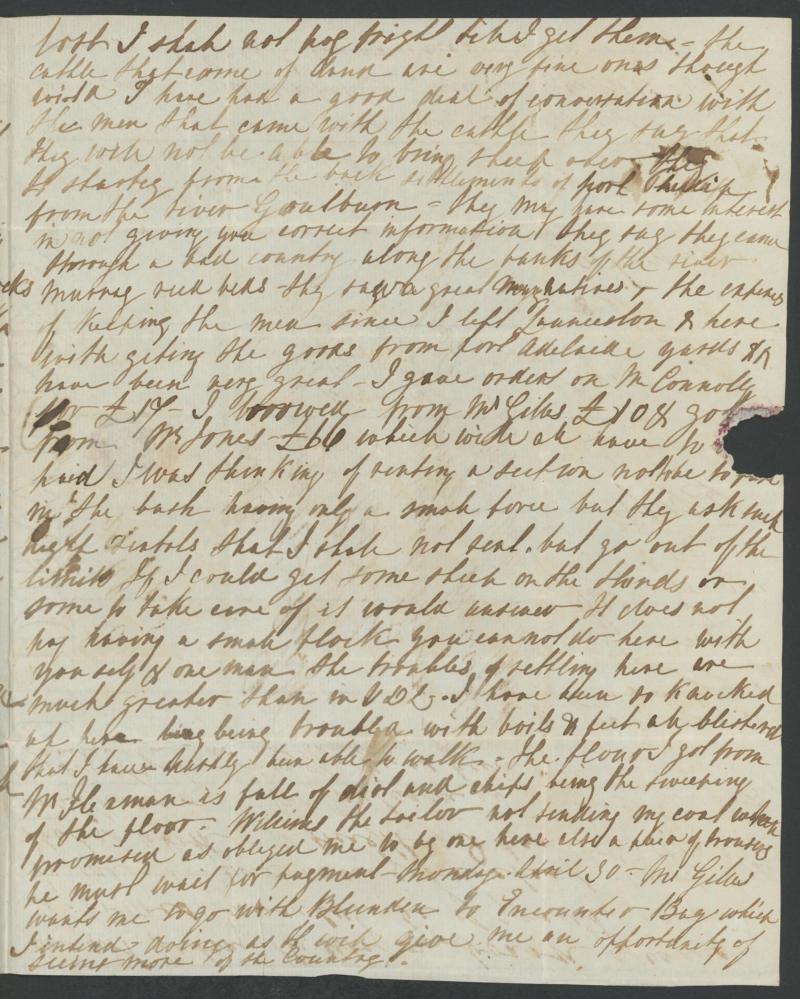 lost I shall not pay freight till I get them - the
cattle that came by land are very fine ones though
wild I have had a good deal of conversation with
the men that came with the cattle they say that
they will not be able to bring sheep over
It started from the back settlements of port Phillip
from the river Goulburn - they may have some interest
in not giving you correct information they say they came
through a bad country along the banks of the river
Murray reed beds they saw a great many natives, the expences
of keeping the men since I left Launceston & here
with geting the goods from port Adelaide yards &c
have been very great - I gave orders on Mr Connolly
for £17 - I borrowed from Mr Giles £10 & got
from Mr Jones £66 which will all have
paid I was thinking of renting a section not to be to
in the bush having only a small force but they ask such
high rentals that I shall not rent. but go out of the
limits If I could get some sheep on the thirds or
some to take care of it would answer It does not
pay having a small flock you can not do here with
yourself & one man the troubles of settling here are
much greater than in V D L. I have been so knocked
up here being troubled with boils & feet all blistered
that I have hardly been able to walk. The flour I got from
Mr is full of dirt and chips being the sweeping
of the floor. Williams the tailor not sending my coat which
promised as obliged me to by one here also a pair of trousers
he must wait for payment - Monday April 30 - Mr Giles
wants me to go with Blunden to Encounter Bay which
I intend doing as it will give me an opportunity of
seeing more of the Country.